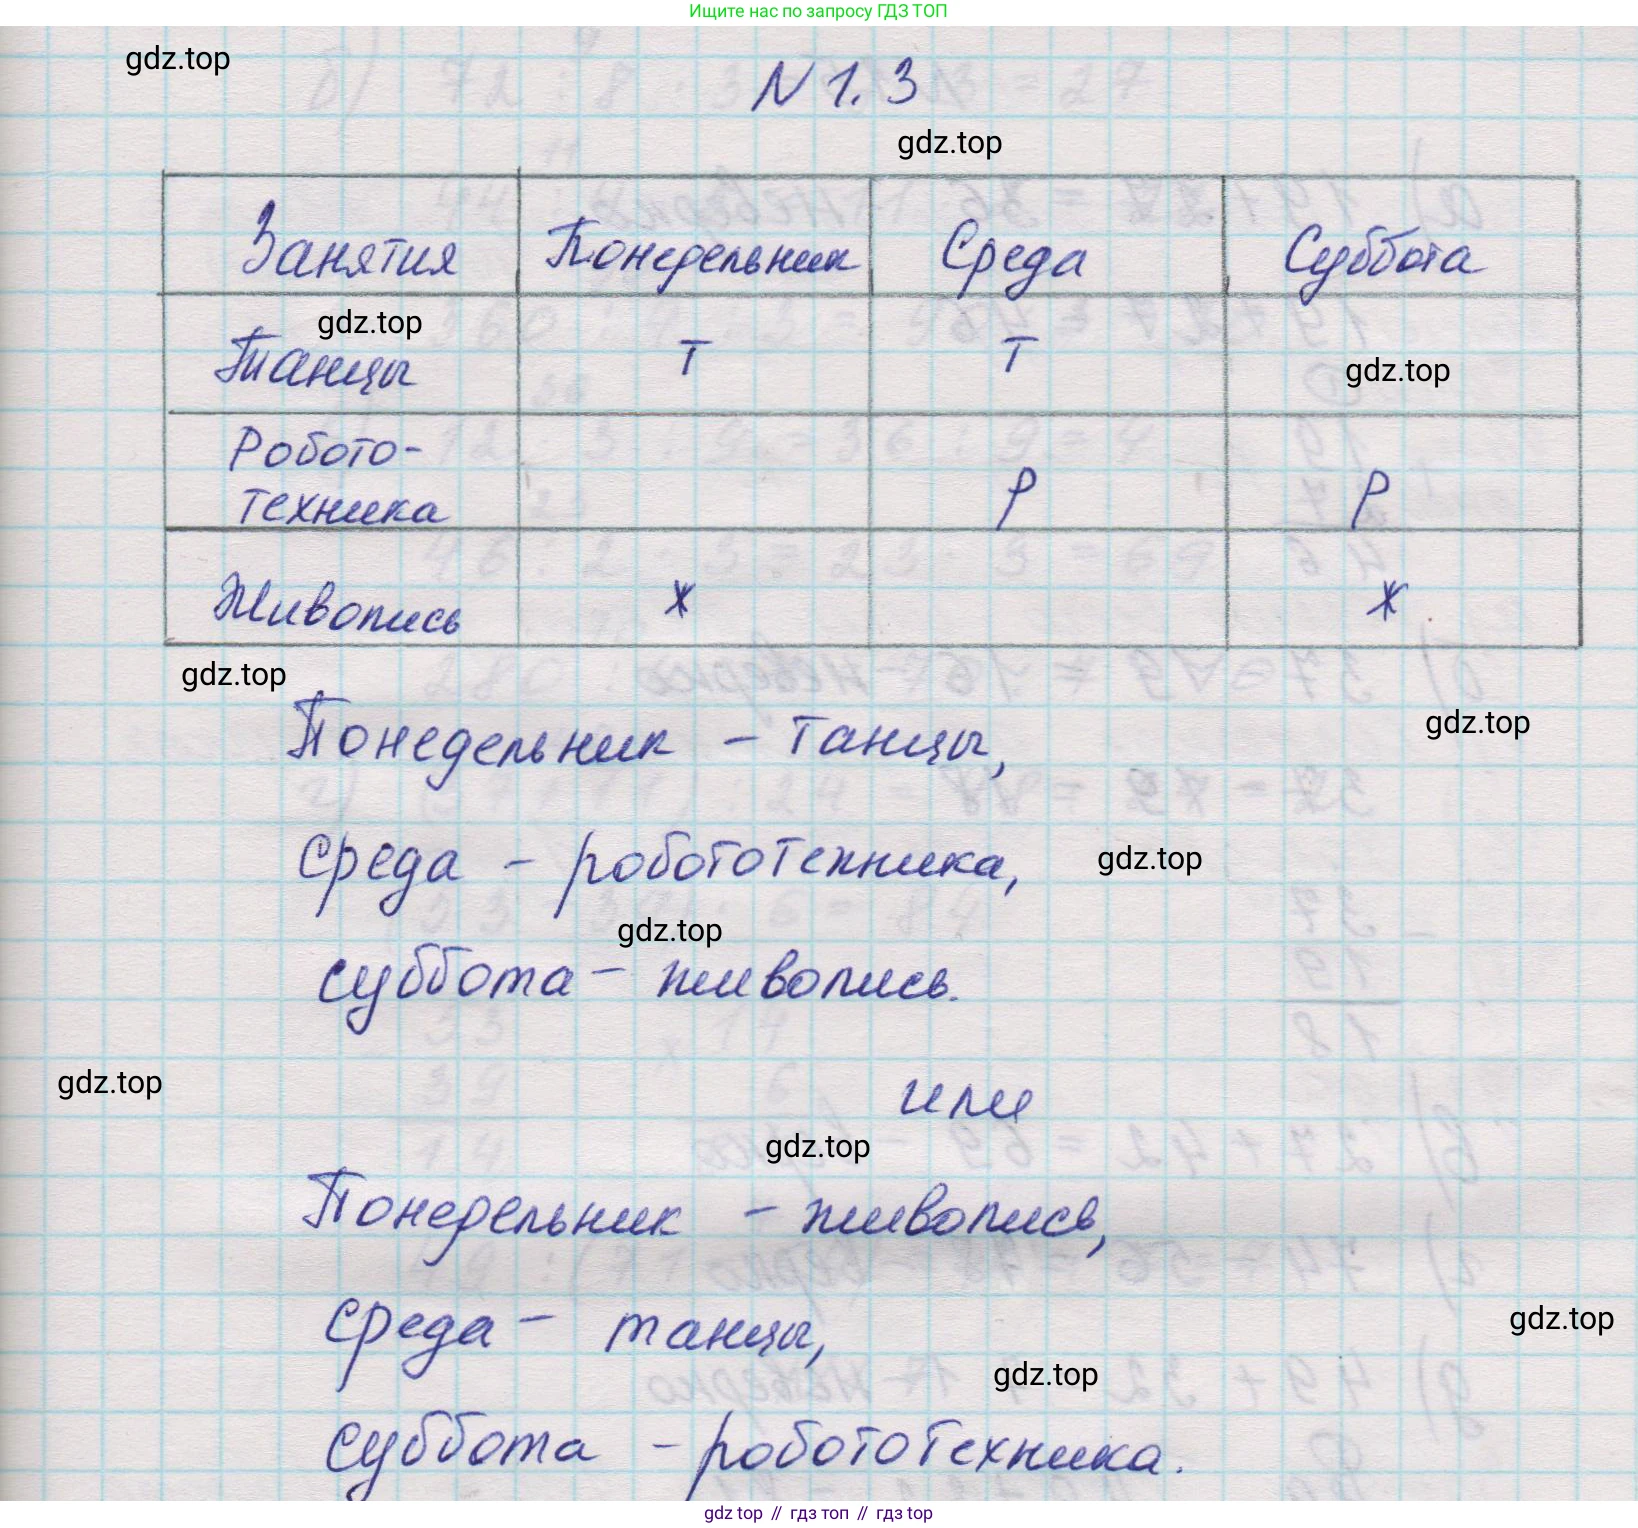 Ищите нас по запросу ГДЗ ТОП
gdz.top
N 1. 3
gdz.top
Занятия Понедельник Среда Суббота
gdz.top
Танцы Т Т
gdz.top
Робото-
техника Р Р
Живопись Ж Ж
gdz.top
gdz.top
Понедельник – танцы,
среда – робототехника,
gdz.top
gdz.top
суббота – живопись.
gdz.top
или
gdz.top
Понедельник – живопись,
среда – танцы,
gdz.top
gdz.top
суббота – робототехника.
gdz top // гдз топ // gdz top